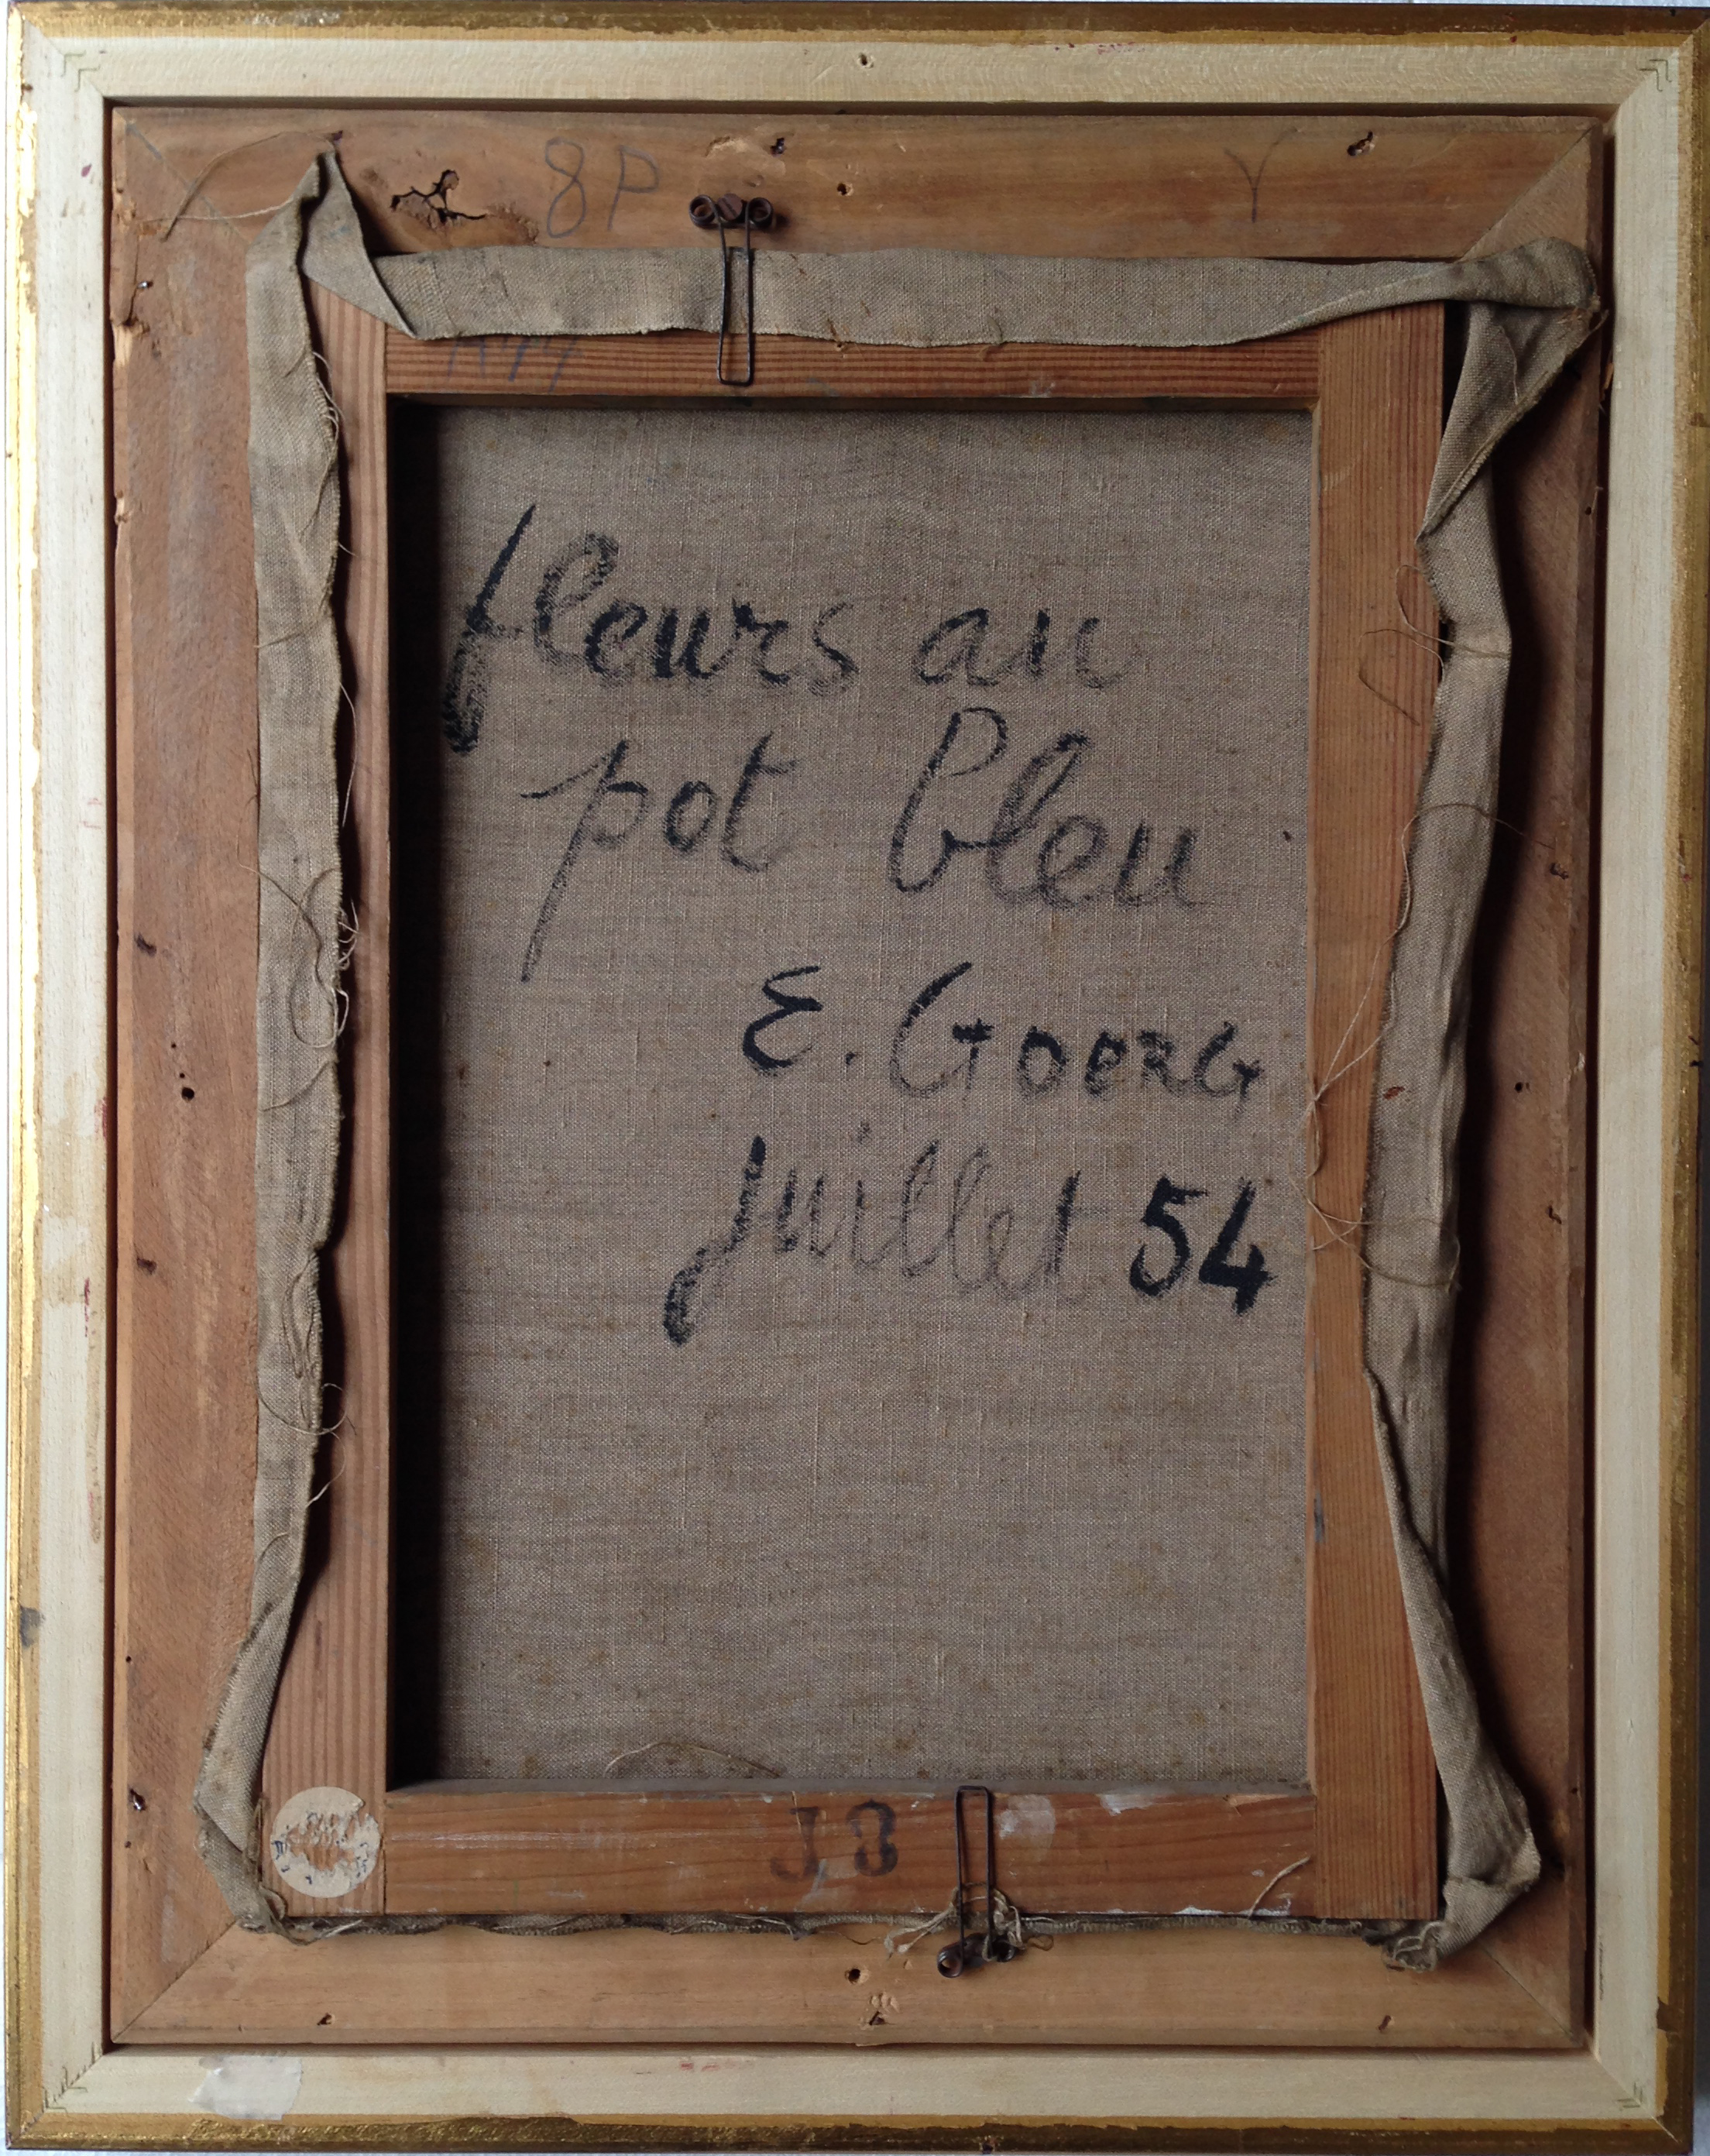 8P Y
fleurs au
pot bleu
E. GOERG
Juillet 54
J 8